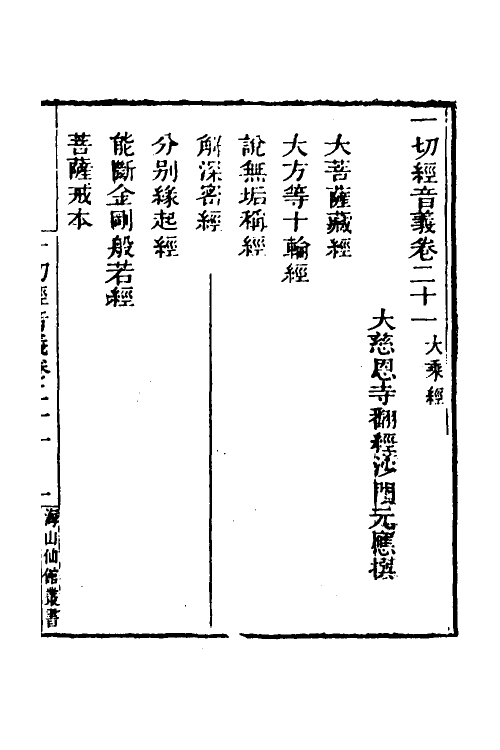 一切經音義卷二十一 大乘經
大慈恩寺翻經沙門元應撰
大菩薩藏經
大方等十輪經
說無垢稱經
解深密經
分別緣起經
能斷金剛般若經
菩薩戒本
一切經音義卷二十一 一 海山仙館叢書